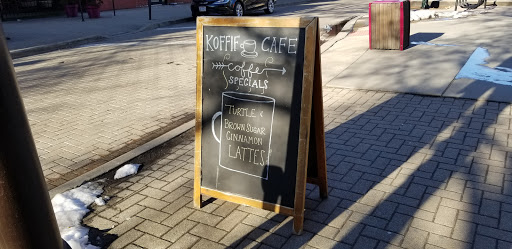 KOFFIF CAFE
coffee
SPECIALS
TURTLE &
BROWN SUGAR
CINNAMON
LATTES